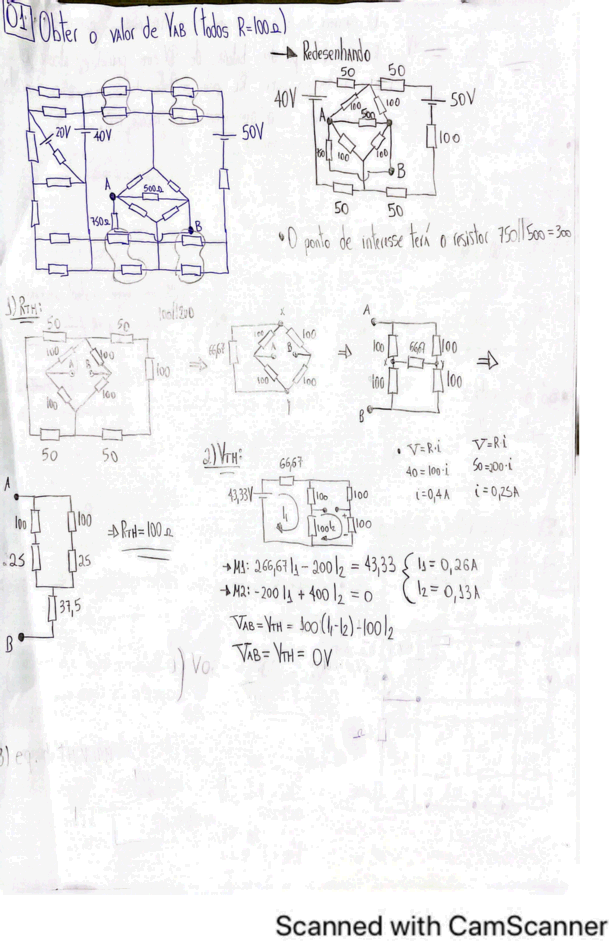 01 Obter o valor de VAB (todos R=100Ω)
→ Redesenhando
50 50
40V 50V
100 100
A 500 100
750 100 100 B
50 50
20V 40V 50V
A 500Ω
750Ω B
• O ponto de interesse terá o resistor 750//500=300
1) RTH:
50 50
100 100 100
A B
100 100
50 50
⇒
66,67
X
100 100
A B
100 100
Y
⇒
A
100 66,67 100
X Y
100 100
B
⇒
A
100 100
25 25
37,5
B
⇒ RTH=100Ω
2) VTH:
66,67
43,33V
100 100
I1 100 I2 100
• V=R·i
40=100·i
i=0,4A
V=R·i
50=200·i
i=0,25A
→ M1: 266,67 I1 - 200 I2 = 43,33 { I1 = 0,26A
→ M2: -200 I1 + 400 I2 = 0 { I2 = 0,13A
VAB = VTH = 100(I1-I2) - 100 I2
VAB = VTH = 0V
Scanned with CamScanner